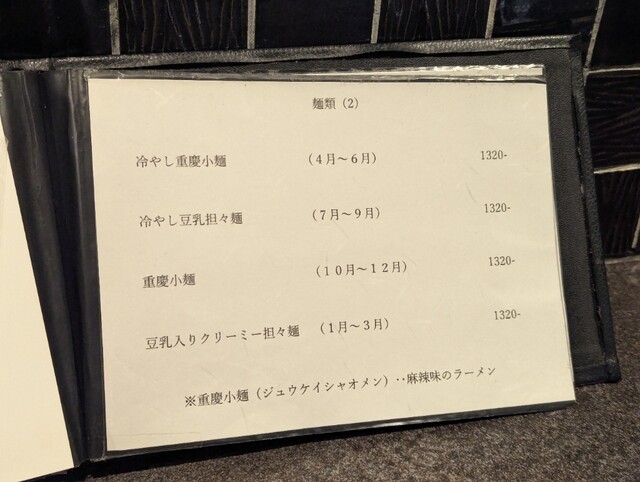 麺類（2）
冷やし重慶小麺　（４月～６月）　1320-
冷やし豆乳担々麺　（７月～９月）　1320-
重慶小麺　（１０月～１２月）　1320-
豆乳入りクリーミー担々麺　（１月～３月）　1320-
※重慶小麺（ジュウケイシャオメン）‥麻辣味のラーメン